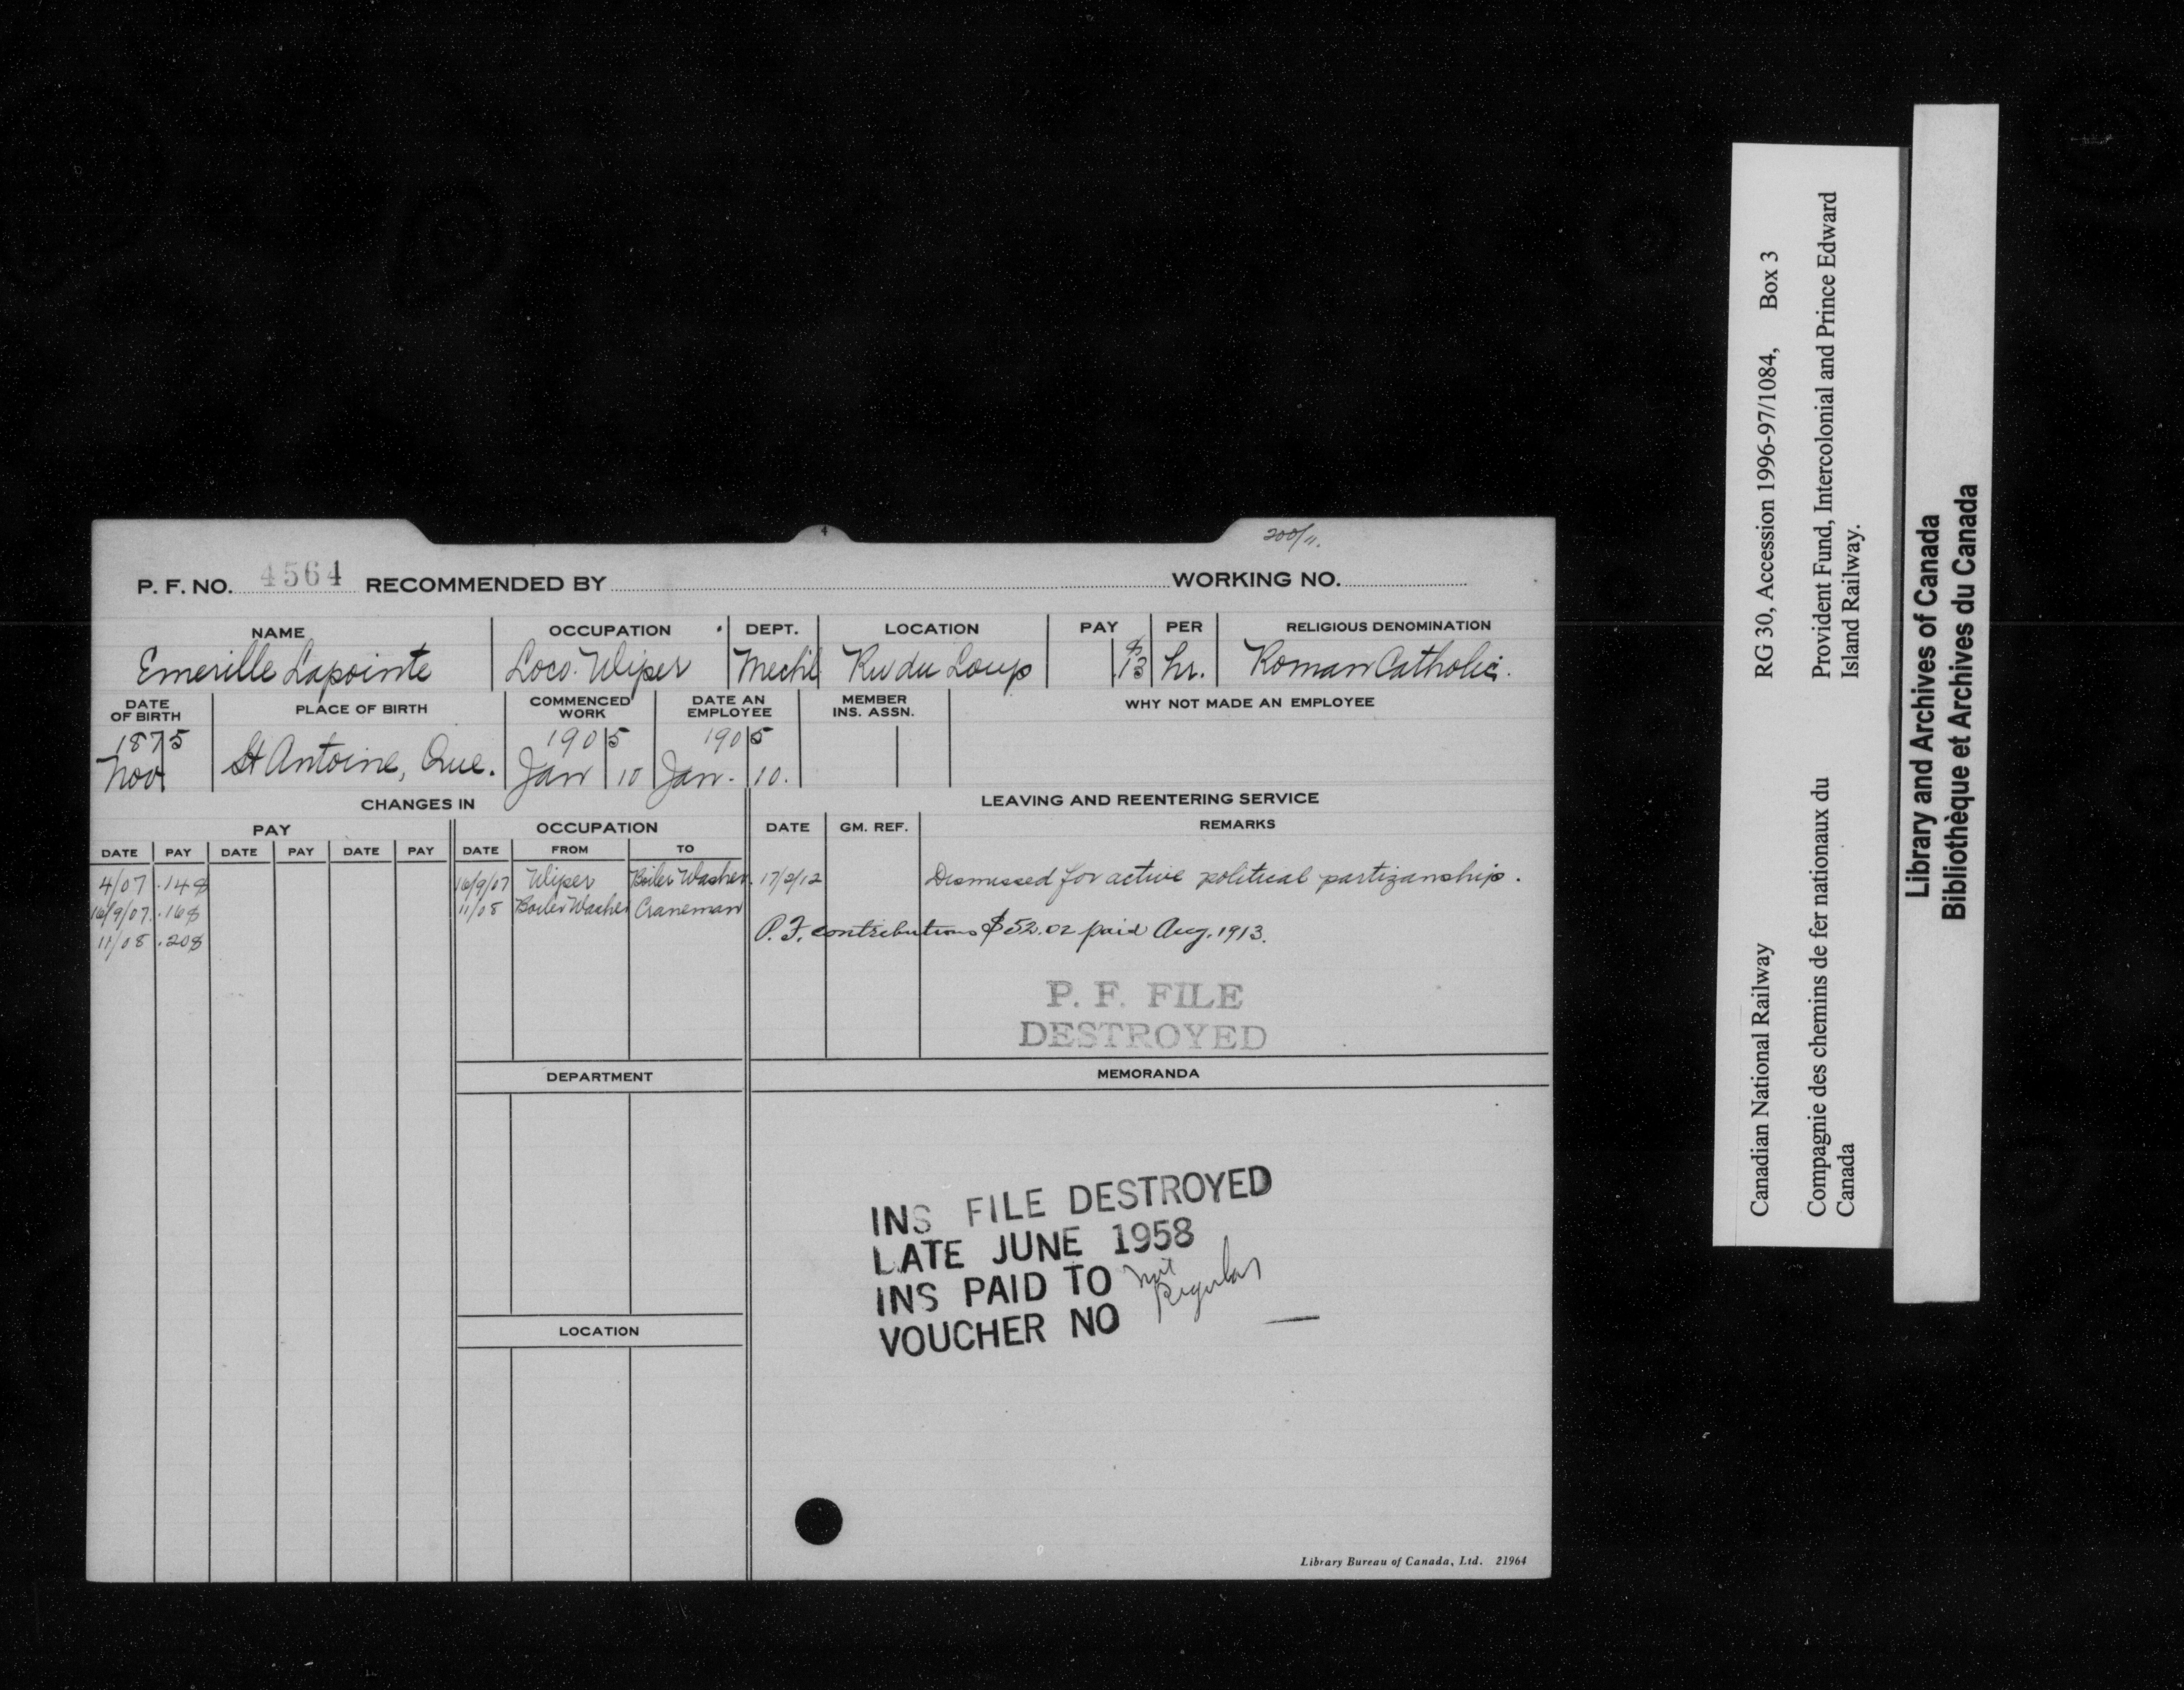 200/11.
4
P. F. NO. 4564 RECOMMENDED BY WORKING NO.
NAME OCCUPATION DEPT. LOCATION PAY PER RELIGIOUS DENOMINATION
Emerille Lapointe Loco. Wiper Mech'l Riv du Loup $ .13 hr. Roman Catholic.
DATE OF BIRTH PLACE OF BIRTH COMMENCED WORK DATE AN EMPLOYEE MEMBER INS. ASSN. WHY NOT MADE AN EMPLOYEE
1875 1905 1905
Nov St Antoine, Que. Jan 10 Jan. 10.
CHANGES IN LEAVING AND REENTERING SERVICE
PAY OCCUPATION DATE GM. REF. REMARKS
DATE PAY DATE PAY DATE PAY DATE FROM TO
4/07 .14 16/9/07 Wiper Boiler Washer. 17/2/12 Dismissed for active political partizanship.
16/9/07 .16 11/08 Boiler Washer Craneman
11/08 .20 P.F. contributions $52.02 paid Aug. 1913.
P. F. FILE
DESTROYED
DEPARTMENT MEMORANDA
INS FILE DESTROYED
LATE JUNE 1958
INS PAID TO
VOUCHER NO —
LOCATION
Library Bureau of Canada, Ltd. 21964
Canadian National Railway RG 30, Accession 1996-97/1084, Box 3
Compagnie des chemins de fer nationaux du Provident Fund, Intercolonial and Prince Edward
Canada Island Railway.
Library and Archives of Canada
Bibliothèque et Archives du Canada